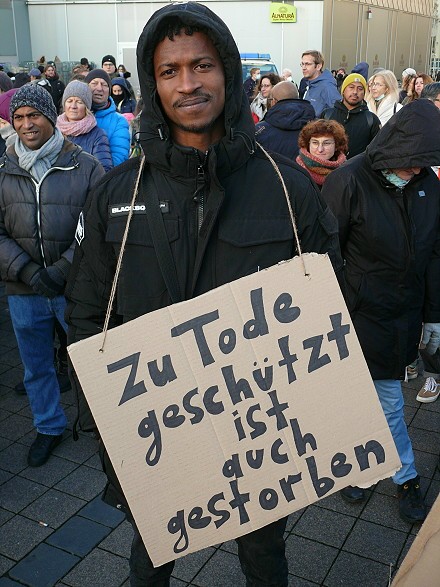 ALNATURA
Zu Tode
geschützt
ist
auch
gestorben